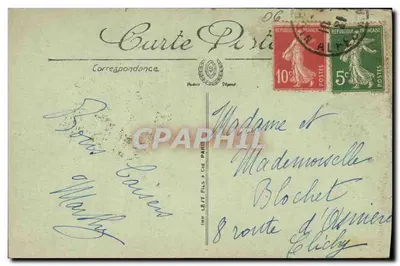 06
Carte Postale
Correspondance
RÉPUBLIQUE FRANÇAISE
10c
POSTES
RÉPUBLIQUE FRANÇAISE
5c
POSTES
21
Bons baisers
Marthe
CPAPHIL.com
IMP. LÉVY FILS & CIE PARIS
Madame et
Mademoiselle
Blochet
8 route d'Asnières
Clichy